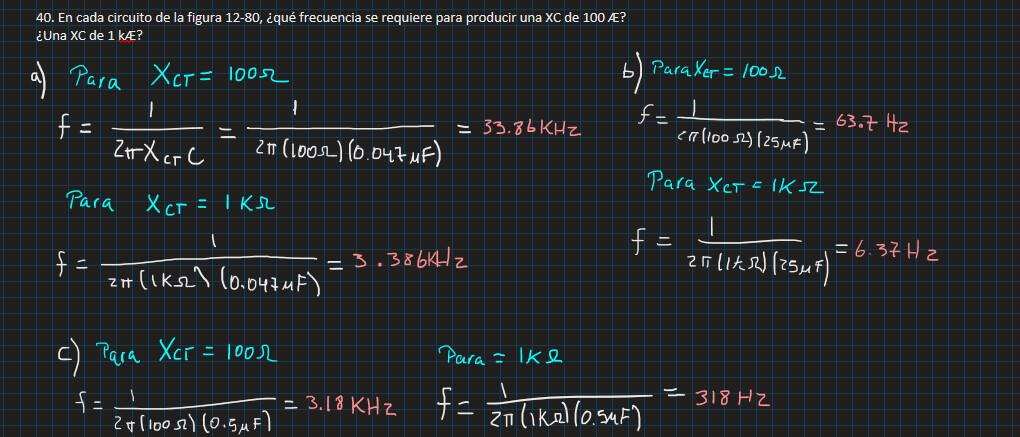 40. En cada circuito de la figura 12-80, ¿qué frecuencia se requiere para producir una XC de 100 Æ?
¿Una XC de 1 kÆ?
a) Para XCT = 100Ω
f = 1 / 2π XCT C = 1 / 2π(100Ω)(0.047μF) = 33.86 KHz
Para XCT = 1 KΩ
f = 1 / 2π(1KΩ)(0.047μF) = 3.386KHz
b) Para XCT = 100Ω
f = 1 / 2π(100Ω)(25μF) = 63.7 Hz
Para XCT = 1KΩ
f = 1 / 2π(1KΩ)(25μF) = 6.37 Hz
c) Para XCT = 100Ω
f = 1 / 2π(100Ω)(0.5μF) = 3.18 KHz
Para = 1KΩ
f = 1 / 2π(1KΩ)(0.5μF) = 318 Hz